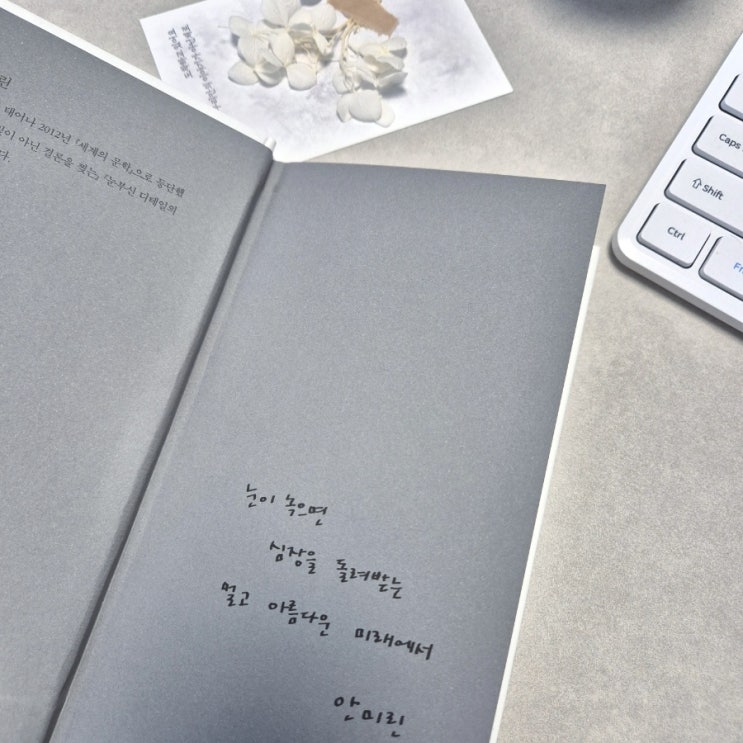 린
태어나 2012년 『세계의 문학』으로 등단했
아닌 결론을 찢는』 『눈부신 디테일의
다.
눈이 녹으면
심장을 돌려받는
멀고 아름다운 미래에서
안미린
Caps
Shift
Ctrl